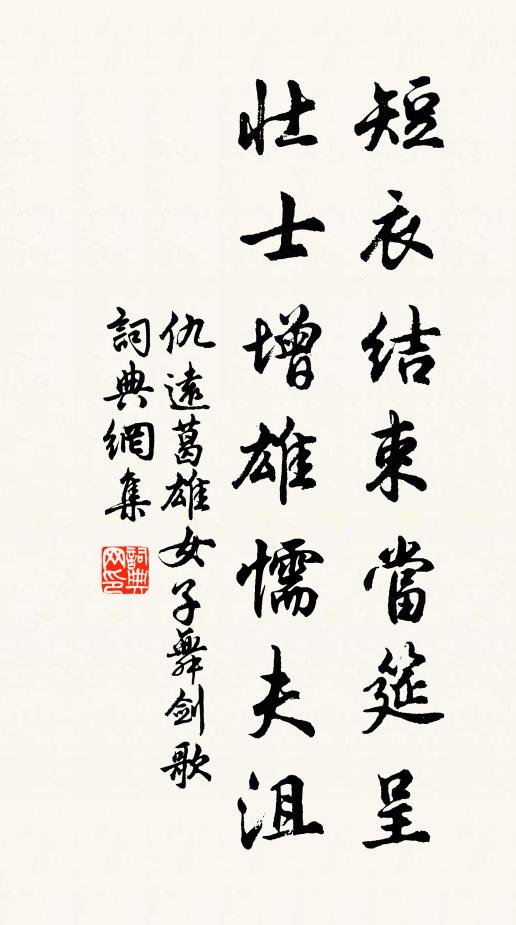 短衣結束當筵呈
壯士增雄懦夫沮
仇遠葛雄女子舞劍歌
詞典網集
詞典網印